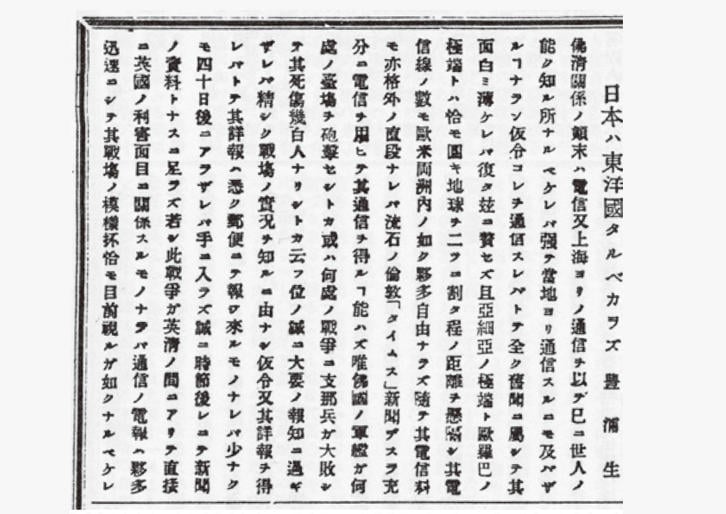 日本ハ東洋國タルベカラズ 豊浦生
佛清關係ノ顛末ハ電信又上海ヨリノ通信ヲ以テ已ニ世人ノ
能ク知ル所ナルベケレバ强テ當地ヨリ通信スルニモ及バザ
ルヿナラン仮令コレヲ通信スレバトテ全ク舊聞ニ屬シテ其
面白ミ薄ケレバ復タ玆ニ贅セズ且亞細亞ノ極端ト歐羅巴ノ
極端トハ恰モ圓キ地球ヲ二ツニ割タ程ノ距離ヲ懸隔シ其電
信線ノ數モ歐米両洲內ノ如ク夥多自由ナラズ隨テ其電信料
モ亦格外ノ直段ナレバ流石ノ倫敦「タイムス」新聞デスラ充
分ニ電信ヲ用ヒテ其通信ヲ得ルヿ能ハズ唯佛國ノ軍艦ガ何
處ノ臺場ヲ砲擊セシトカ或ハ何處ノ戰爭ニ支那兵ガ大敗シ
テ其死傷幾百人ナリシトカ云フ位ノ誠ニ大要ノ報知ニ過ギ
ザレバ精シク戰場ノ實況ヲ知ルニ由ナシ仮令又其詳報ヲ得
レバトテ其詳報ハ悉ク郵便ニテ報ヲ來ルモノナレバ少ナク
モ四十日後ニアラザレバ手ニ入ラズ誠ニ時節後レニテ新聞
ノ資料トナスニ足ラズ若シ此戰爭ガ英清ノ間ニアリテ直接
ニ英國ノ利害面目ニ關係スルモノナラバ通信ノ電報ハ夥多
迅速ニシテ其戰場ノ模樣抔恰モ目前視ルガ如クナルベケレ